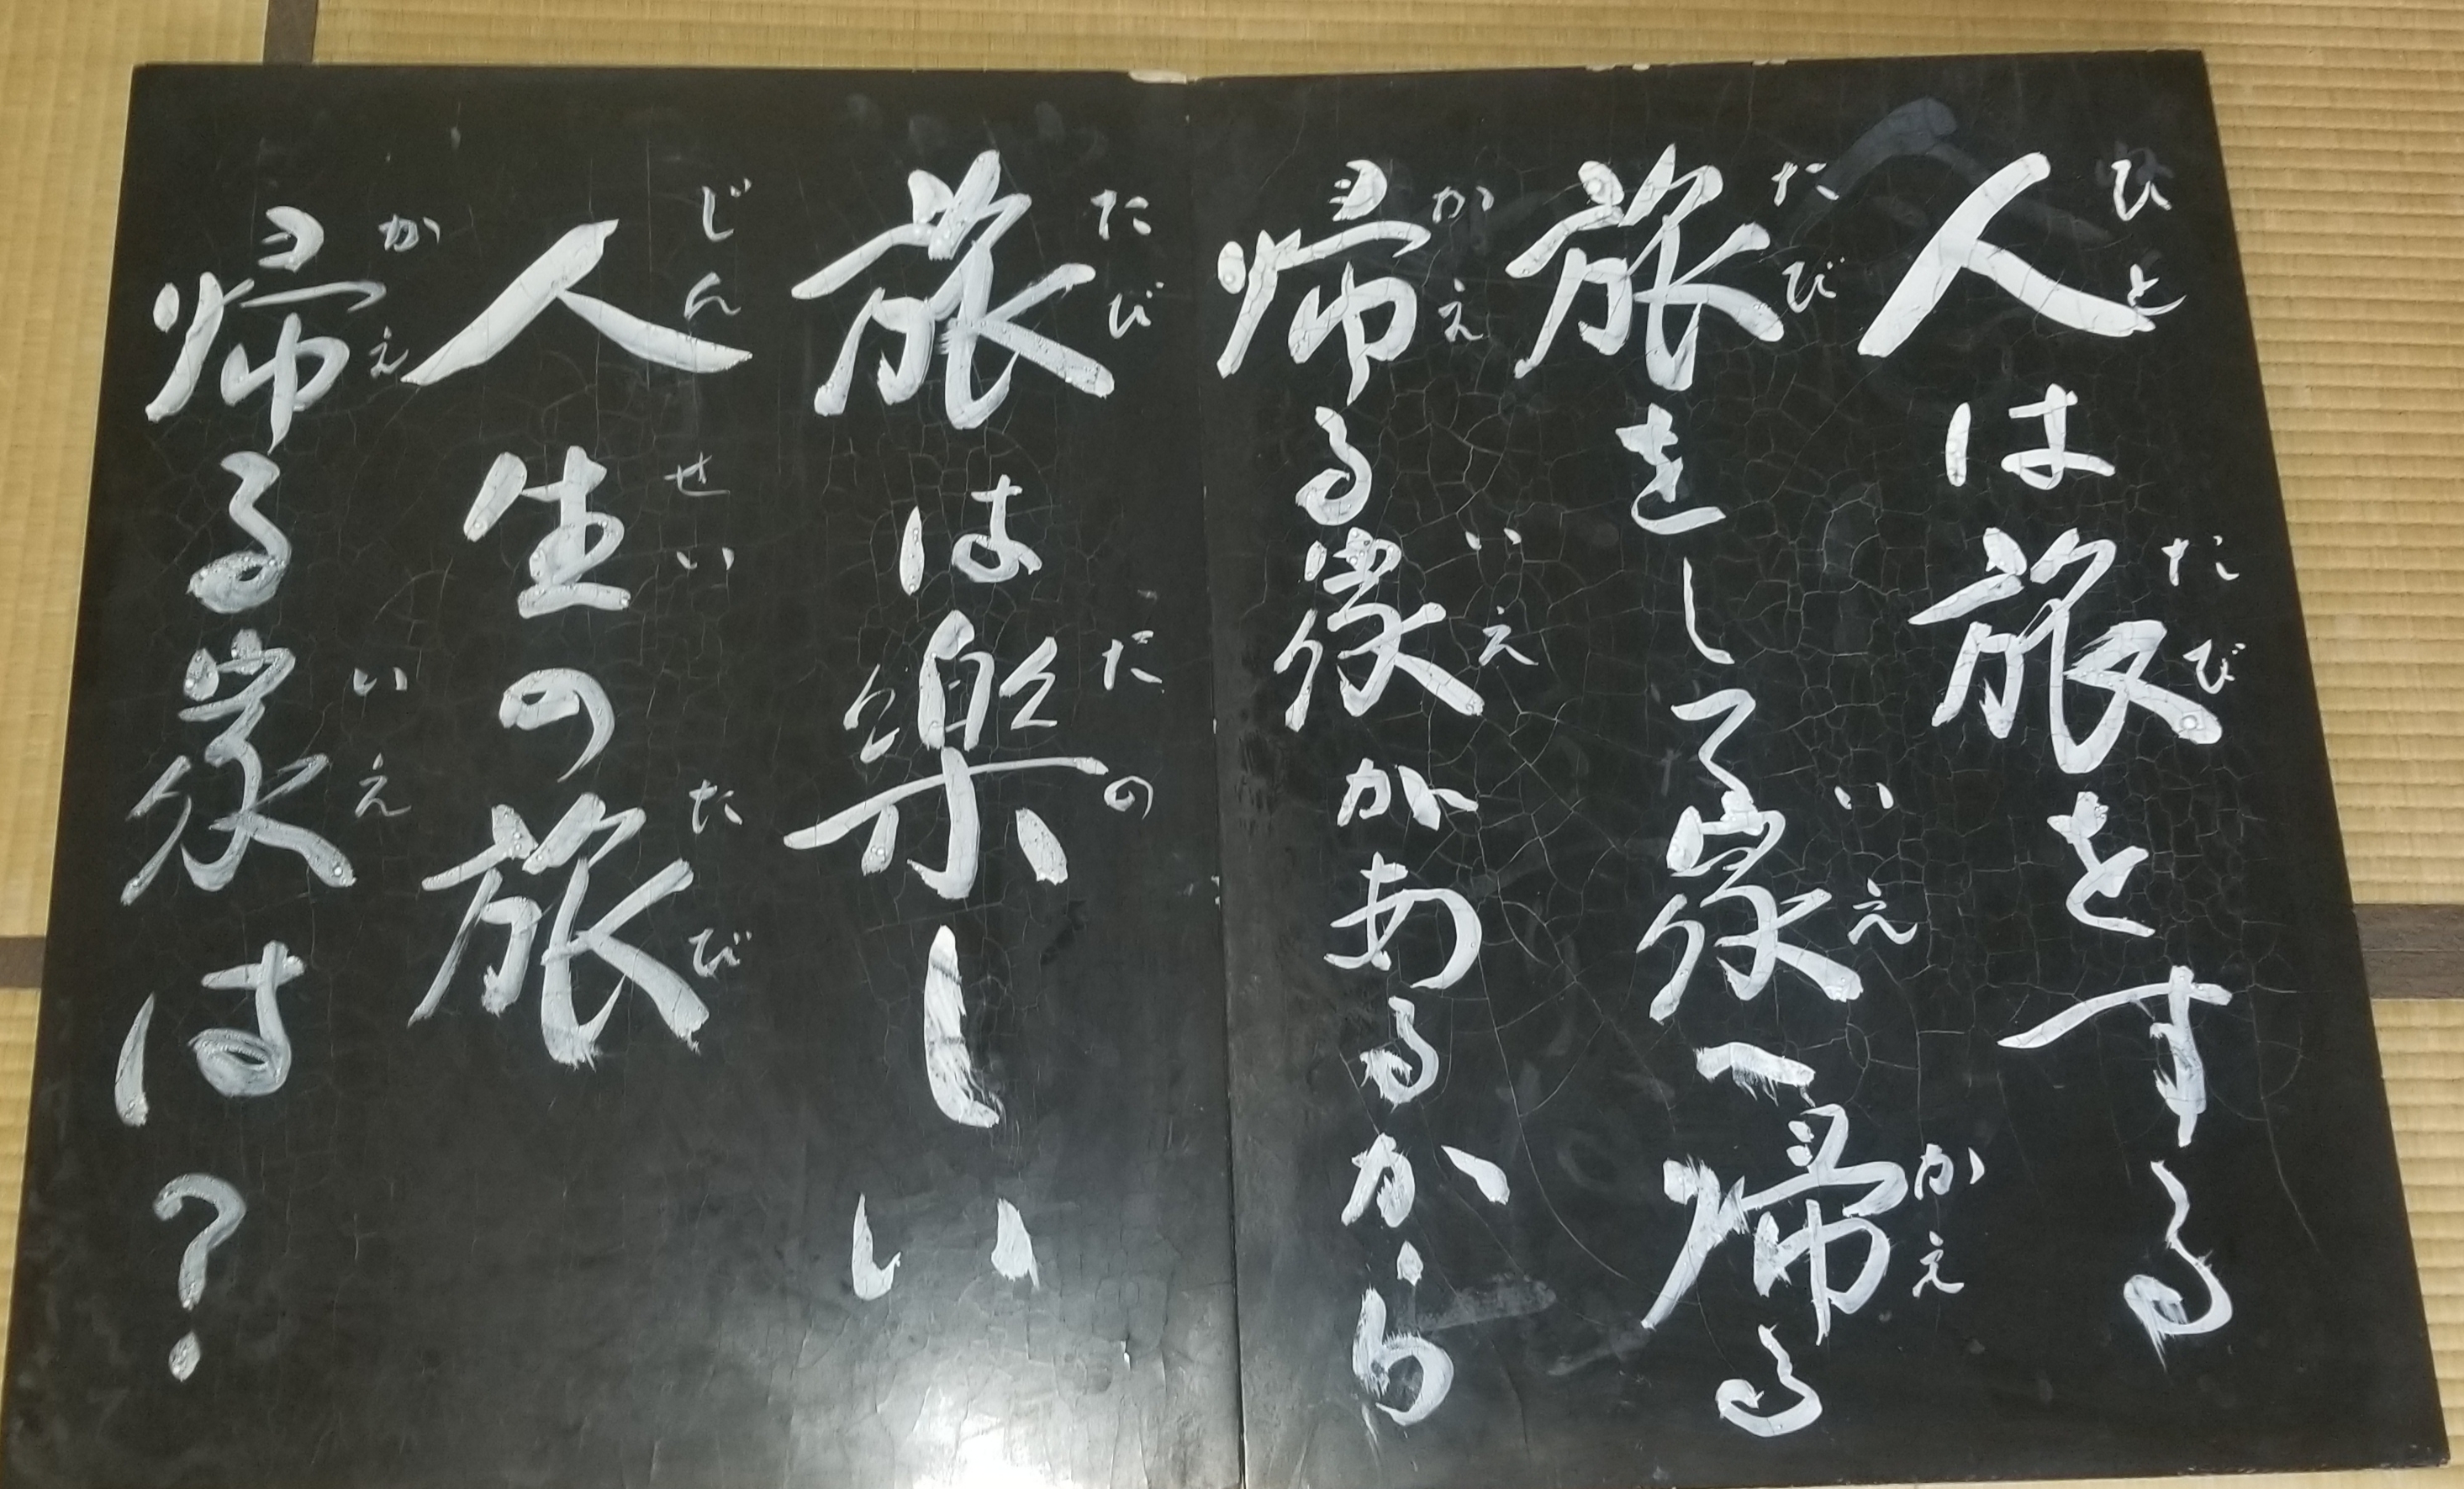 人は旅をする
旅をして家へ帰る
帰る家があるから
旅は楽しい
人生の旅
帰る家は?
ひと たび
たび いえ かえ
かえ いえ
たび たの
じんせい たび
かえ いえ